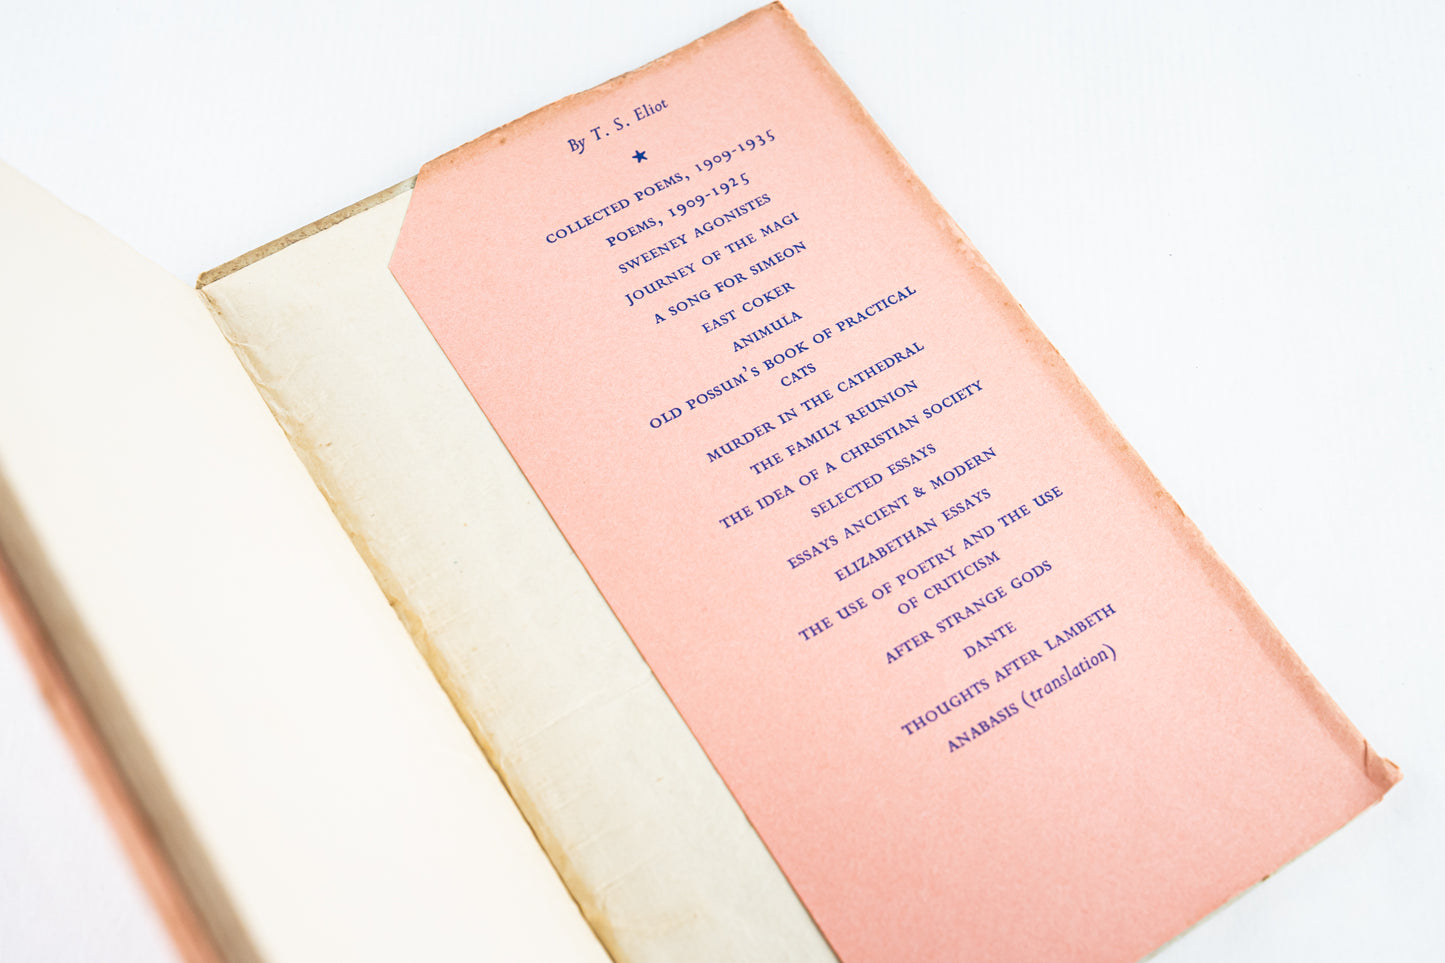 By T. S. Eliot
★
COLLECTED POEMS, 1909-1935
POEMS, 1909-1925
SWEENEY AGONISTES
JOURNEY OF THE MAGI
A SONG FOR SIMEON
EAST COKER
ANIMULA
OLD POSSUM'S BOOK OF PRACTICAL
CATS
MURDER IN THE CATHEDRAL
THE FAMILY REUNION
THE IDEA OF A CHRISTIAN SOCIETY
SELECTED ESSAYS
ESSAYS ANCIENT & MODERN
ELIZABETHAN ESSAYS
THE USE OF POETRY AND THE USE
OF CRITICISM
AFTER STRANGE GODS
DANTE
THOUGHTS AFTER LAMBETH
ANABASIS (translation)